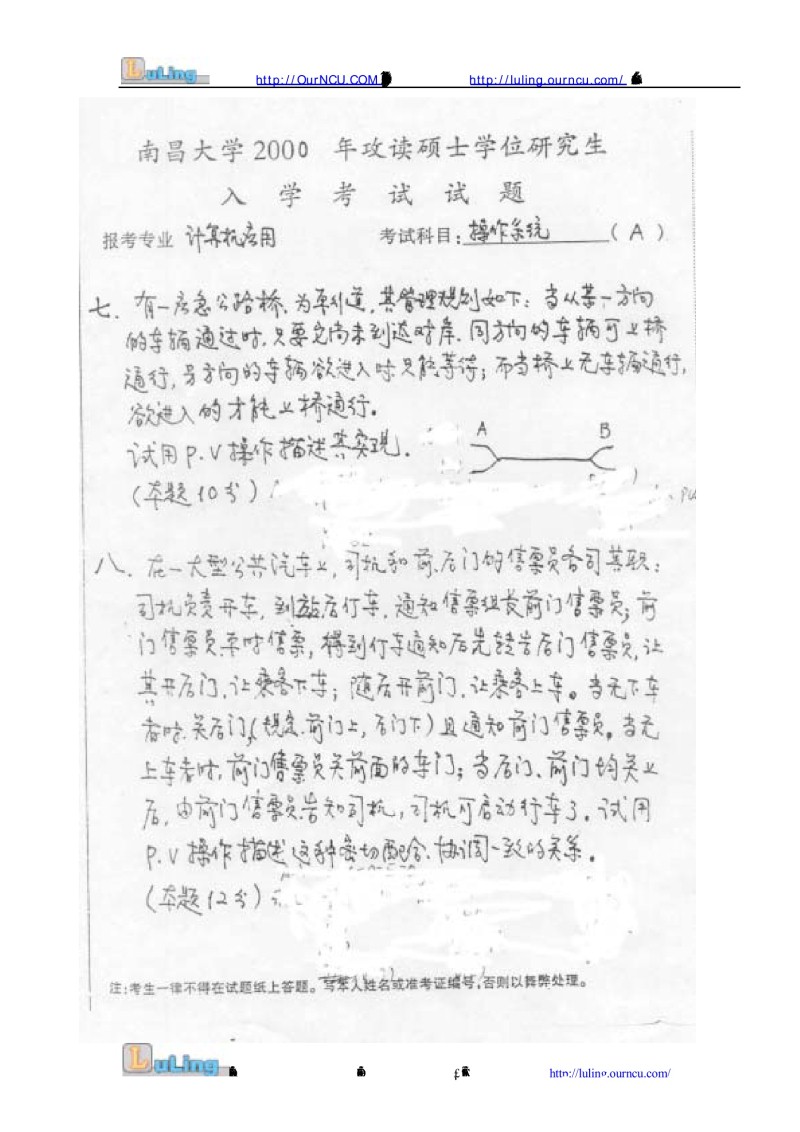 LuLing http://OurNCU.COM http://luling.ourncu.com/
南昌大学2000 年攻读硕士学位研究生
入 学 考 试 试 题
报考专业 计算机应用 考试科目: 操作系统 (A)
七. 有一座急公路桥,为单行道,其管理规则如下: 当从某一方向
的车辆通过时,只要它尚未到达对岸,同方向的车辆可上桥
通行,另方向的车辆欲进入时只能等待; 而当桥上无车辆通行,
欲进入的才能上桥通行.
试用P.V操作描述其实现.
A B
(本题10分)
八. 在一大型公共汽车上,司机和前.后门的售票员各司其职:
司机负责开车,到站后停车,通知售票组长前门售票员; 前
门售票员平时售票,得到停车通知后先转告后门售票员,让
其开后门,让乘客下车; 随后开前门,让乘客上车。当无下车
者时.关后门,(规定.前门上,后门下)且通知前门售票员。当无
上车者时,前门售票员关前面的车门; 当后门、前门均关上
后,由前门售票员告知司机,司机可启动行车了. 试用
P.V操作描述这种密切配合.协调一致的关系.
(本题12分)
注:考生一律不得在试题纸上答题。写本人姓名或准考证编号,否则以舞弊处理。
LuLing http://luling.ourncu.com/